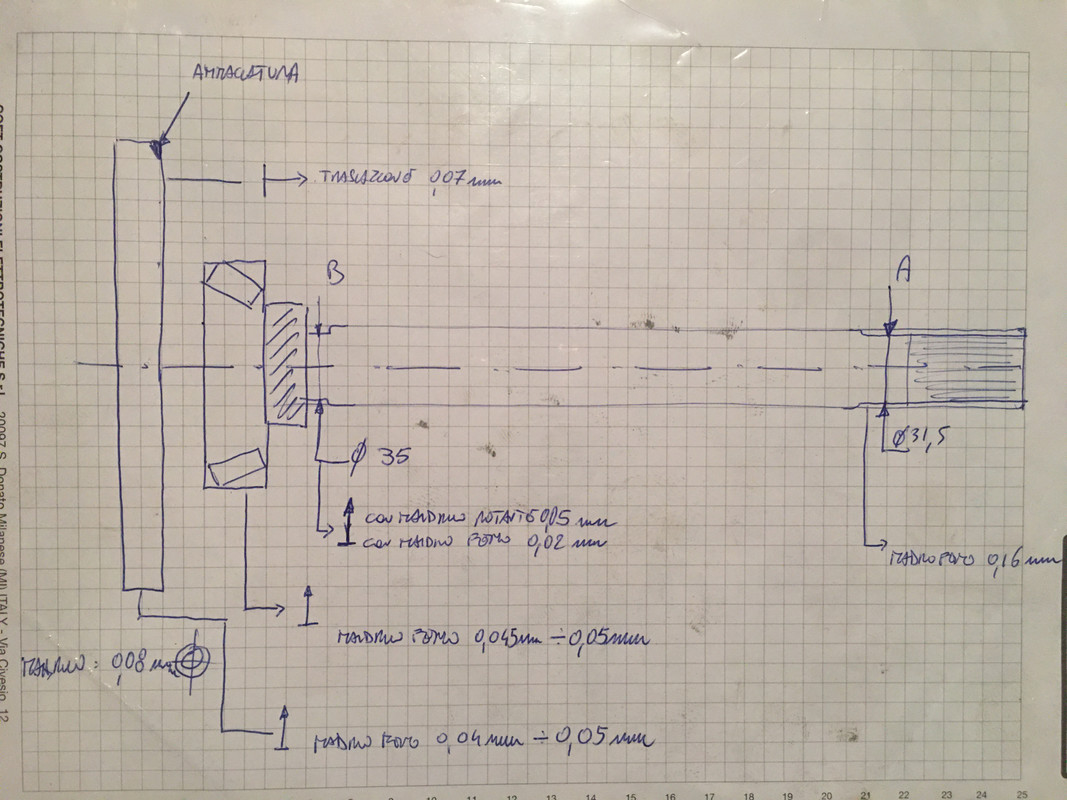 TRASLAZIONE 0,07 mm
B
A
Ø 35
Ø 31,5
CON MANDRINO ROTANTE 0,05 mm
CON MANDRINO FERMO 0,02 mm
MANDRINO FERMO 0,16 mm
MANDRINO FERMO 0,045mm ÷ 0,05mm
MANDRINO: 0,08 mm
MANDRINO FERMO 0,04mm ÷ 0,05mm
20097 S. Donato Milanese (MI) ITALY - Via Civesio, 12
10 11 12 13 14 15 16 17 18 19 20 21 22 23 24 25